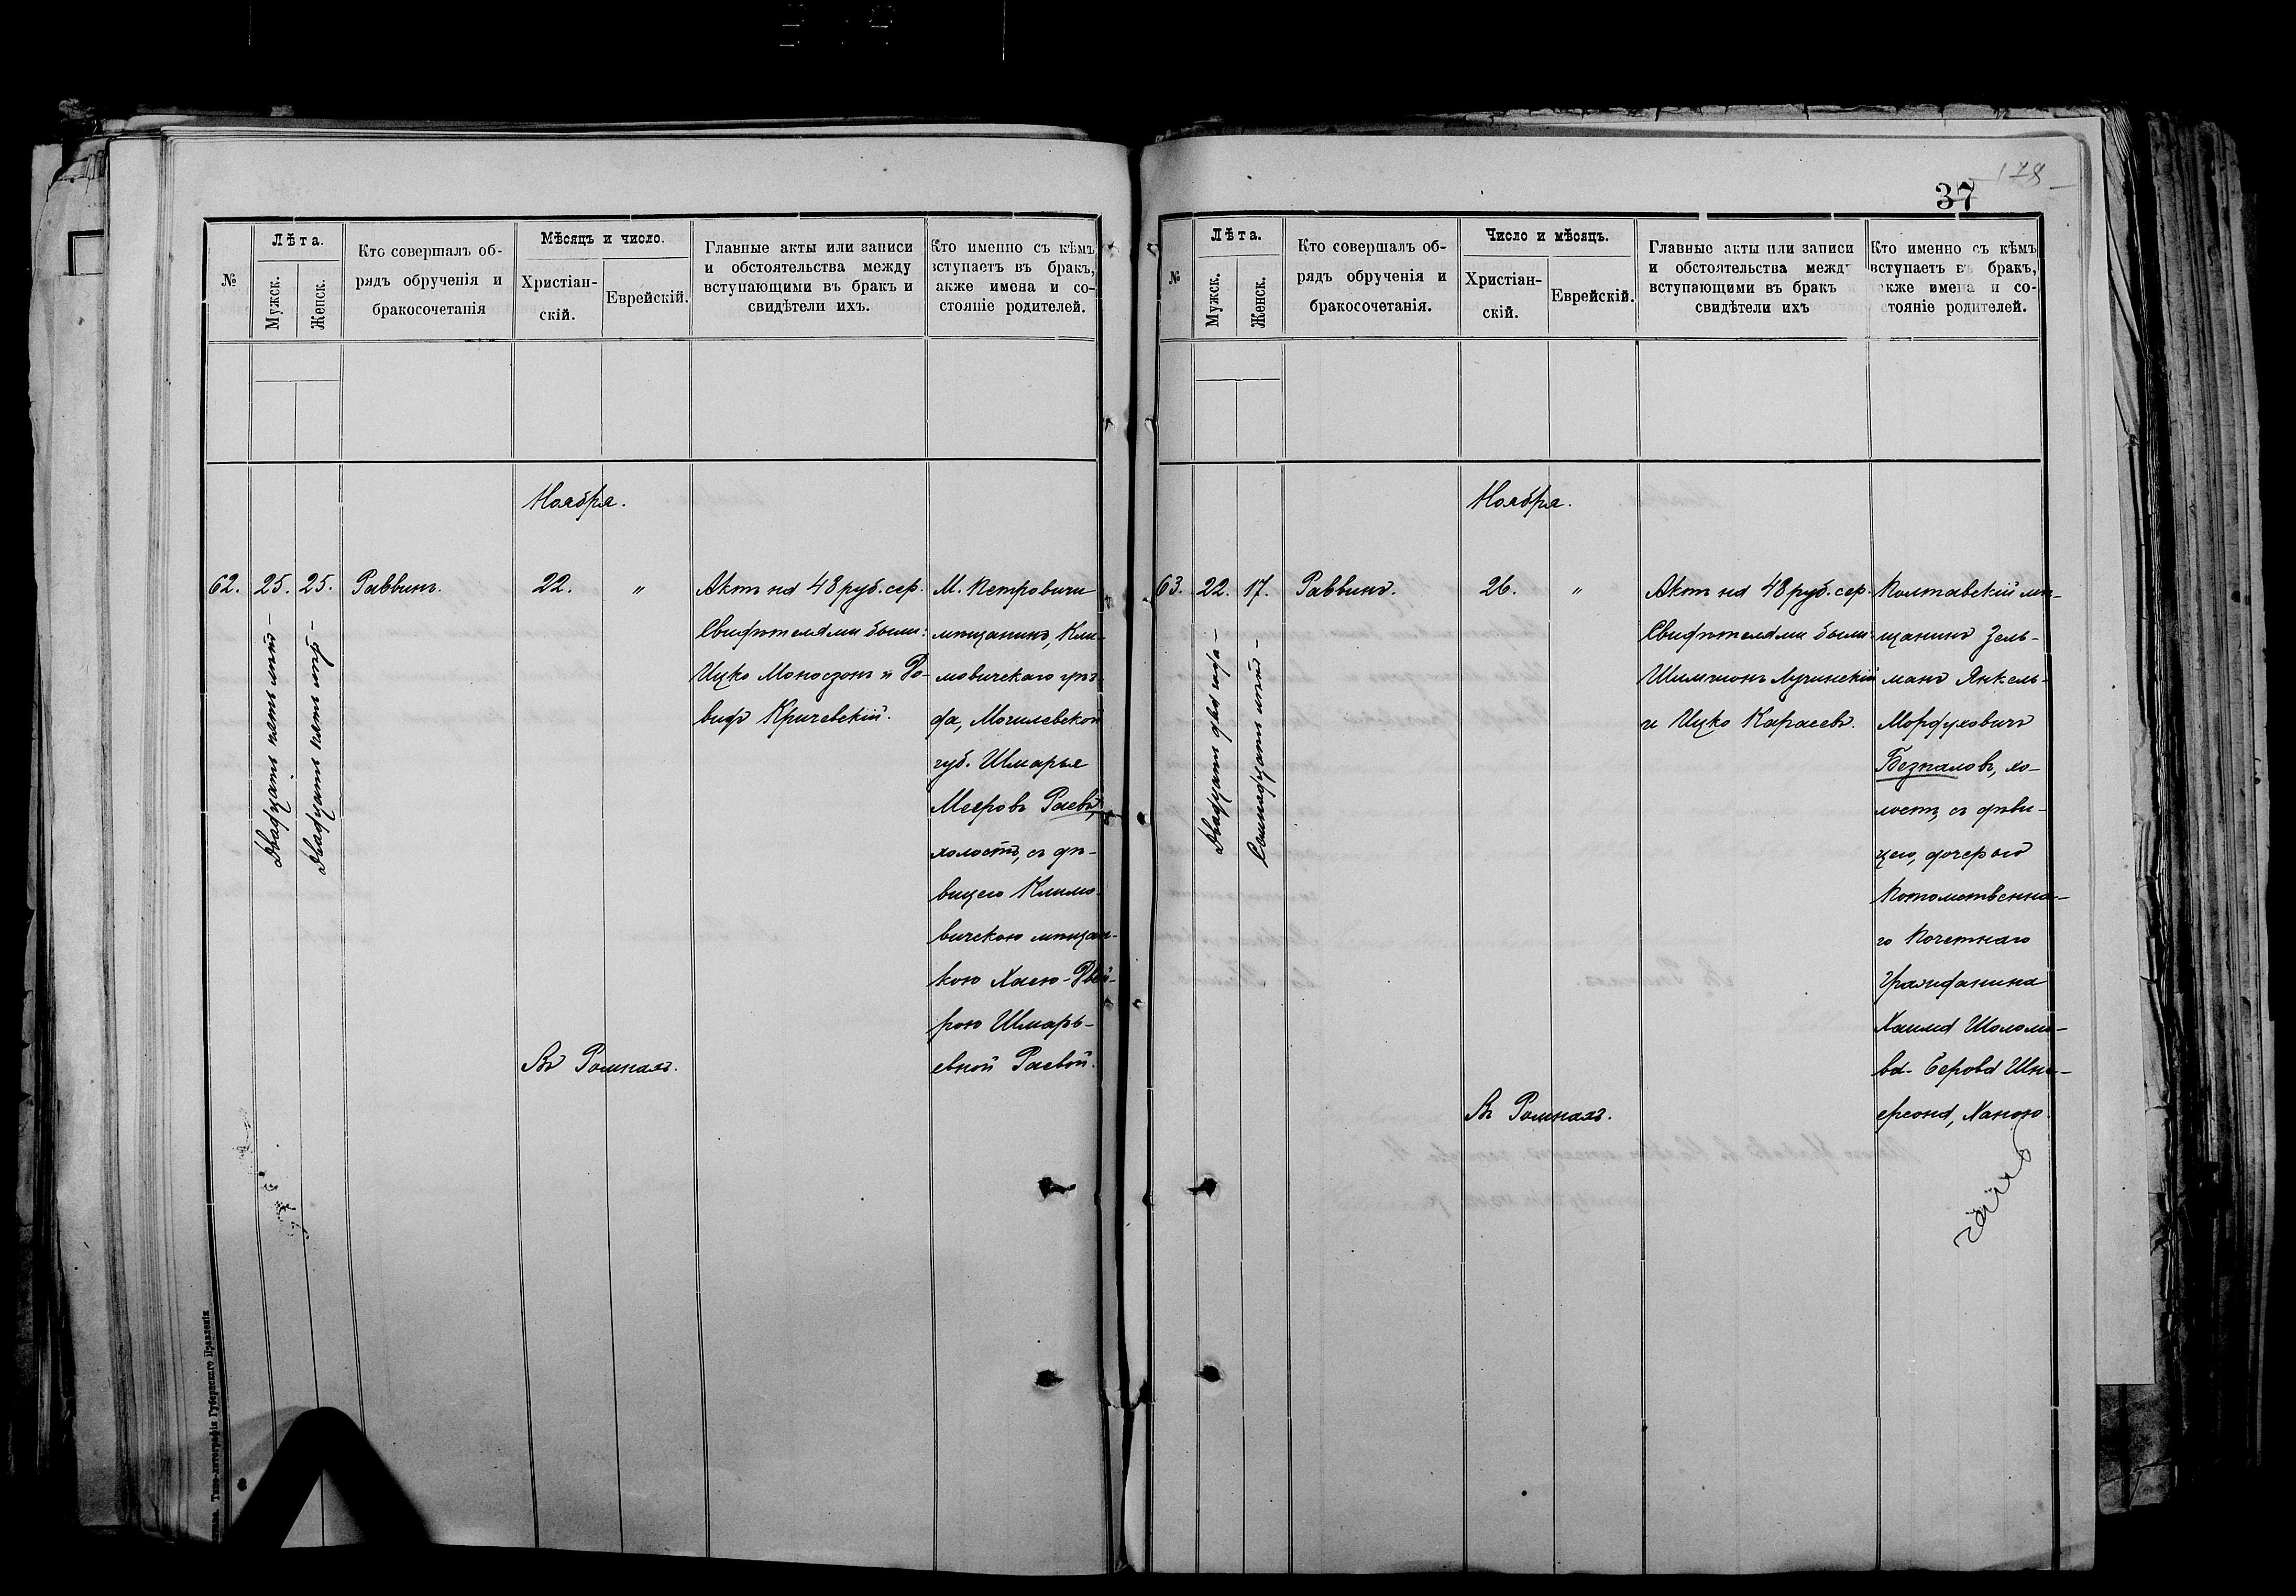 №
Лѣта.
Мужск.
Женск.
Кто совершалъ об-
рядъ обрученія и
бракосочетанія
Мѣсяцъ и число.
Христіан-
скій.
Еврейскій.
Главные акты или записи
и обстоятельства между
вступающими въ бракъ и
свидѣтели ихъ.
Кто именно съ кѣмъ
вступаетъ въ бракъ,
акже имена и со-
стояніе родителей.
Ноября.
62.
25.
25.
Двадцать пять лѣтъ
Двадцать пять лѣтъ
Раввинъ.
22.
"
Актъ на 48 руб. сер.
Свидѣтелями были:
Ицко Моносзонъ и До-
видъ Кричевскій.
М. Петровичи
мѣщанинъ, Кли-
мовичскаго уѣз-
да, Могилевской
губ. Шмарья
Мееровъ Раевъ,
холостъ, съ дѣ-
вицею Климо-
вичскою мѣщан-
кою Хаею-Двей-
рою Шмарь-
евной Раевой.
Въ Ромнахъ.
Типо-литографія Губернскаго Правленія
178
37
№
Лѣта.
Мужск.
Женск.
Кто совершалъ об-
рядъ обрученія и
бракосочетанія.
Число и мѣсяцъ.
Христіан-
скій.
Еврейскій.
Главные акты или записи
и обстоятельства между
вступающими въ бракъ и
свидѣтели ихъ
Кто именно съ кѣмъ
вступаетъ въ бракъ,
также имена и со-
стояніе родителей.
Ноября.
63.
22.
17.
Двадцать два года
Семнадцать лѣтъ
Раввинъ.
26.
"
Актъ на 48 руб. сер.
Свидѣтелями были:
Шимшонъ Лучинскій
и Ицко Карасевъ.
Полтавскій мѣ-
щанинъ Зель-
манъ Янкель-
Мордуховичъ
Безпаловъ, хо-
лостъ, съ дѣви-
цею, дочерью
Потомственна-
го Почетнаго
Гражданина
Хаима Шоломо-
ва-Берова Шне-
ерсона, Ханою
Въ Ромнахъ.